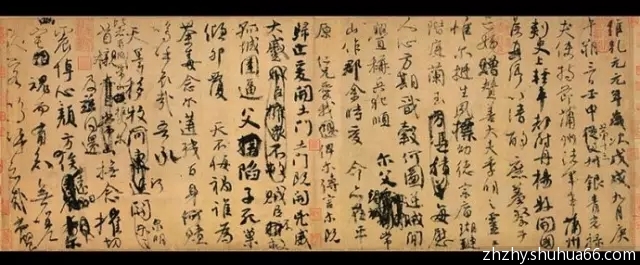 維乾元元年歲次戊戌九月庚
午朔三日壬申第十三叔銀青光祿
夫使持節蒲州諸軍事蒲州
刺史上輕車都尉丹楊縣開國
侯真卿以清酌庶羞祭于
亡姪贈贊善大夫季明之靈曰
惟爾挺生夙標幼德宗廟瑚璉
階庭蘭玉每慰
人心方期戩穀何圖逆賊間
釁稱兵犯順
爾父竭誠常
山作郡余時受命亦在平
原仁兄愛我俾爾傳言爾既
歸止爰開土門土門既開凶威
大蹙賊臣不救
孤城圍逼父陷子死巢
傾卵覆天不悔禍誰為
荼毒念爾遘殘百身何贖
嗚呼哀哉吾承
天澤移牧河關泉明
首櫬及茲同還撫念摧切
震悼心顏方俟
幽宅魂而有知無嗟
久客嗚呼哀哉尚饗
zhzhy.shuhua66.com